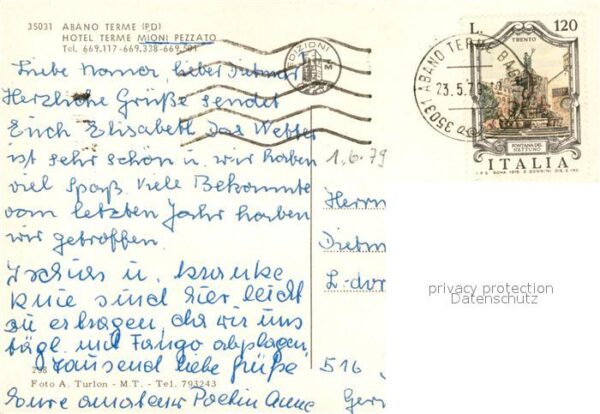 35031 ABANO TERME (PD)
HOTEL TERME MIONI PEZZATO
Tel. 669.117-669.338-669.501
L. 120
TRENTO
FONTANA DEL NETTUNO
ITALIA
35031 ABANO TERME BAG
23.5.79
EDIZIONI
1.6.79
Liebe Mama, lieber Dietmar
Herzliche Grüße sendet
Euch Elisabeth das Wetter
ist sehr schön u. wir haben
viel Spaß. Viele Bekannte
vom letzten Jahr haben
wir getroffen.
Ischias u. kranke
Knie sind hier leicht
zu ertragen, da wir uns
tägl. mit Fango abplagen,
Tausend liebe Grüße
Eure
Anne
Herrn
Dietm
L-dor
516
Ger
238
Foto A. Turlon - M.T. - Tel. 793243
privacy protection
Datenschutz